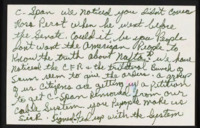 C-Span we noticed you didn't cover
Ross Perot when he went before
the Senate. Could it be you People
don't want the American People to
Know the truth about Nafta? we have
noticed the C.F.R + the Trilateral
seem to give the orders. a group
of us citizens are getting up a petition
to get C-Span removed from our
Cable System you People make us
Sick. Signed Fed up with the System